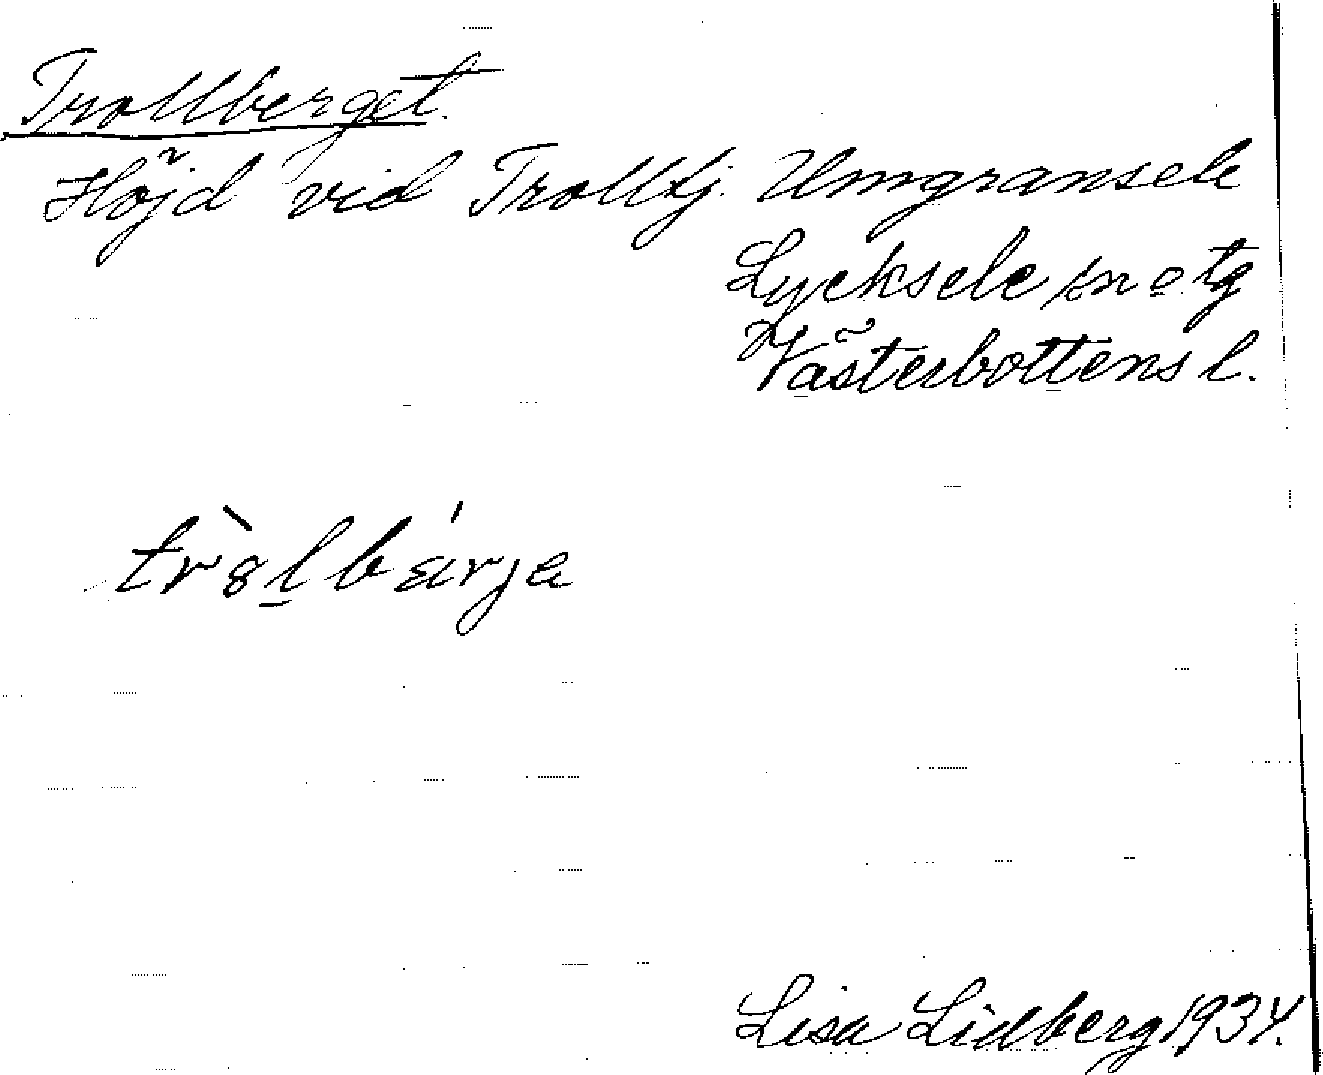 Trollberget.
Höjd vid Trolltj. Umgransele
Lycksele sn o. tg
Västerbottens l.
tr̀ȣl̲bä́rjɐ
Lisa Lidberg 1934.